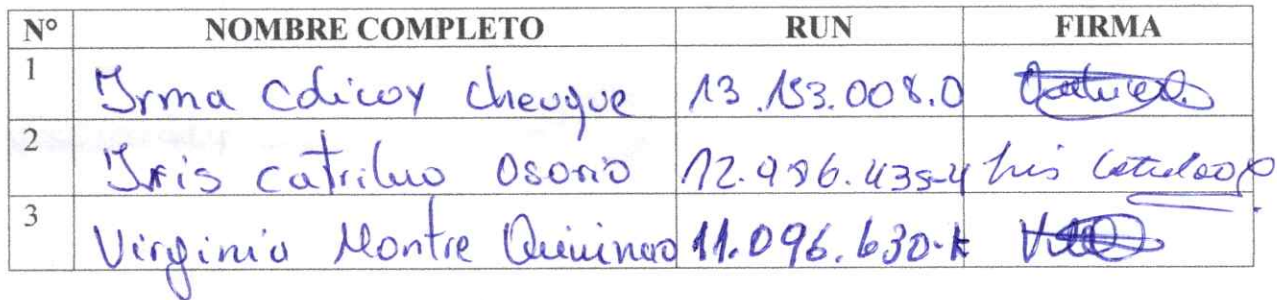 N° NOMBRE COMPLETO RUN FIRMA
1 Irma Colicoy Cheuque 13.153.008.0
2 Iris Catriluo Osorio 12.986.435-4 Iris
3 Virginia Montre 11.096.630-k